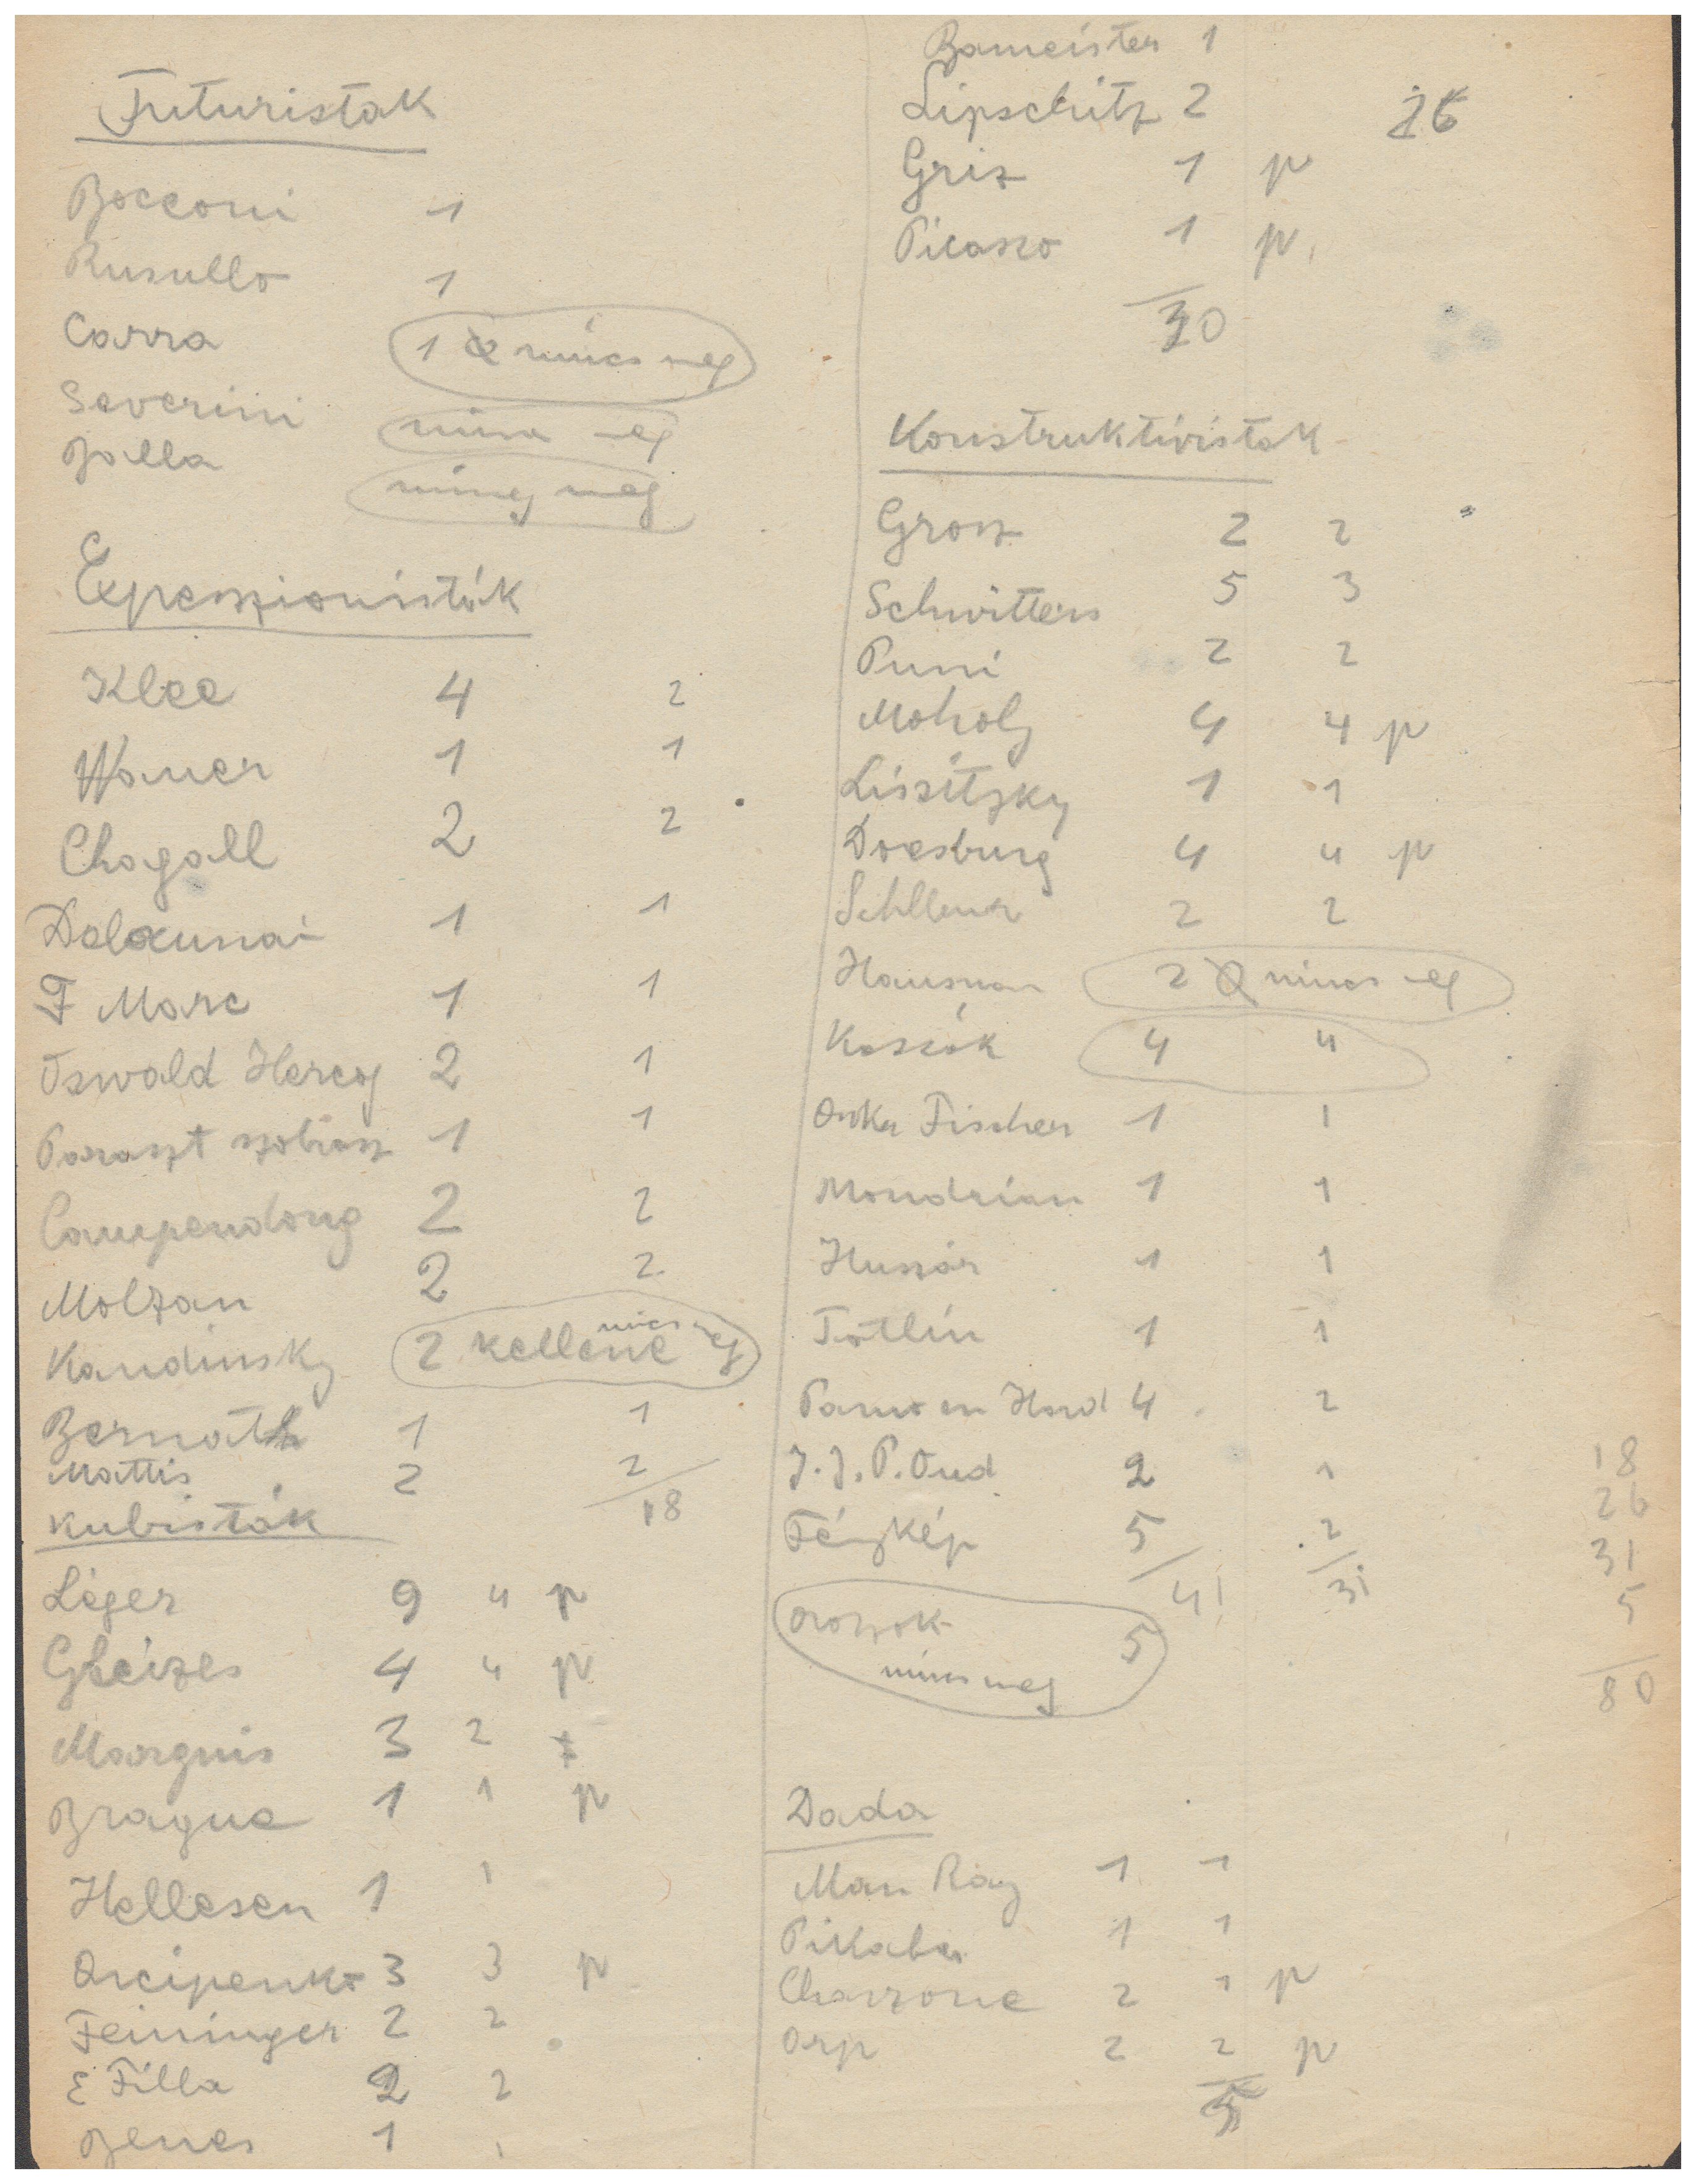 Futuristak
Bocconi 1
Rusullo 1
Carra 1 nincs meg
Severini nincs meg
Balla nincs meg
Expeszionisták
Klee 4 2
Wauer 1 1
Chagall 2 2
Delaunai 1 1
F Marc 1 1
Oswald Herzog 2 1
Paraszt szobrász 1 1
Campendong 2 2
Molzan 2 2
Kandinsky 2 kellene nincs meg
Bernath 1 1
Mattis 2 2
18
Kubisták
Léger 9 4 p
Gleizes 4 4 p
Marquis 3 2
Braque 1 1 p
Hellesen 1 1
Arcipenko 3 3 p
Feininger 2 2
E Filla 2 2
Benes 1 1
Bameister 1
Lipschitz 2 26
Griz 1 p
Picasso 1 p
30
Konstruktivistak
Grosz 2 2
Schwitters 5 3
Puni 2 2
Moholy 4 4 p
Lissitzky 1 1
Doesburg 4 4 p
2 2
Hausman 2 nincs meg
Kassák 4 4
Oskar Fischer 1 1
Mondrian 1 1
Huszár 1 1
Tatlin 1 1
4 2
J. J. P. Oud 2 1
Fénykép 5 2
41 31
oroszok 5
nincs meg
18
26
31
5
80
Dada
Man Ray 1 1
Pikabia 1 1
Charzone 2 1 p
Arp 2 2 p
5